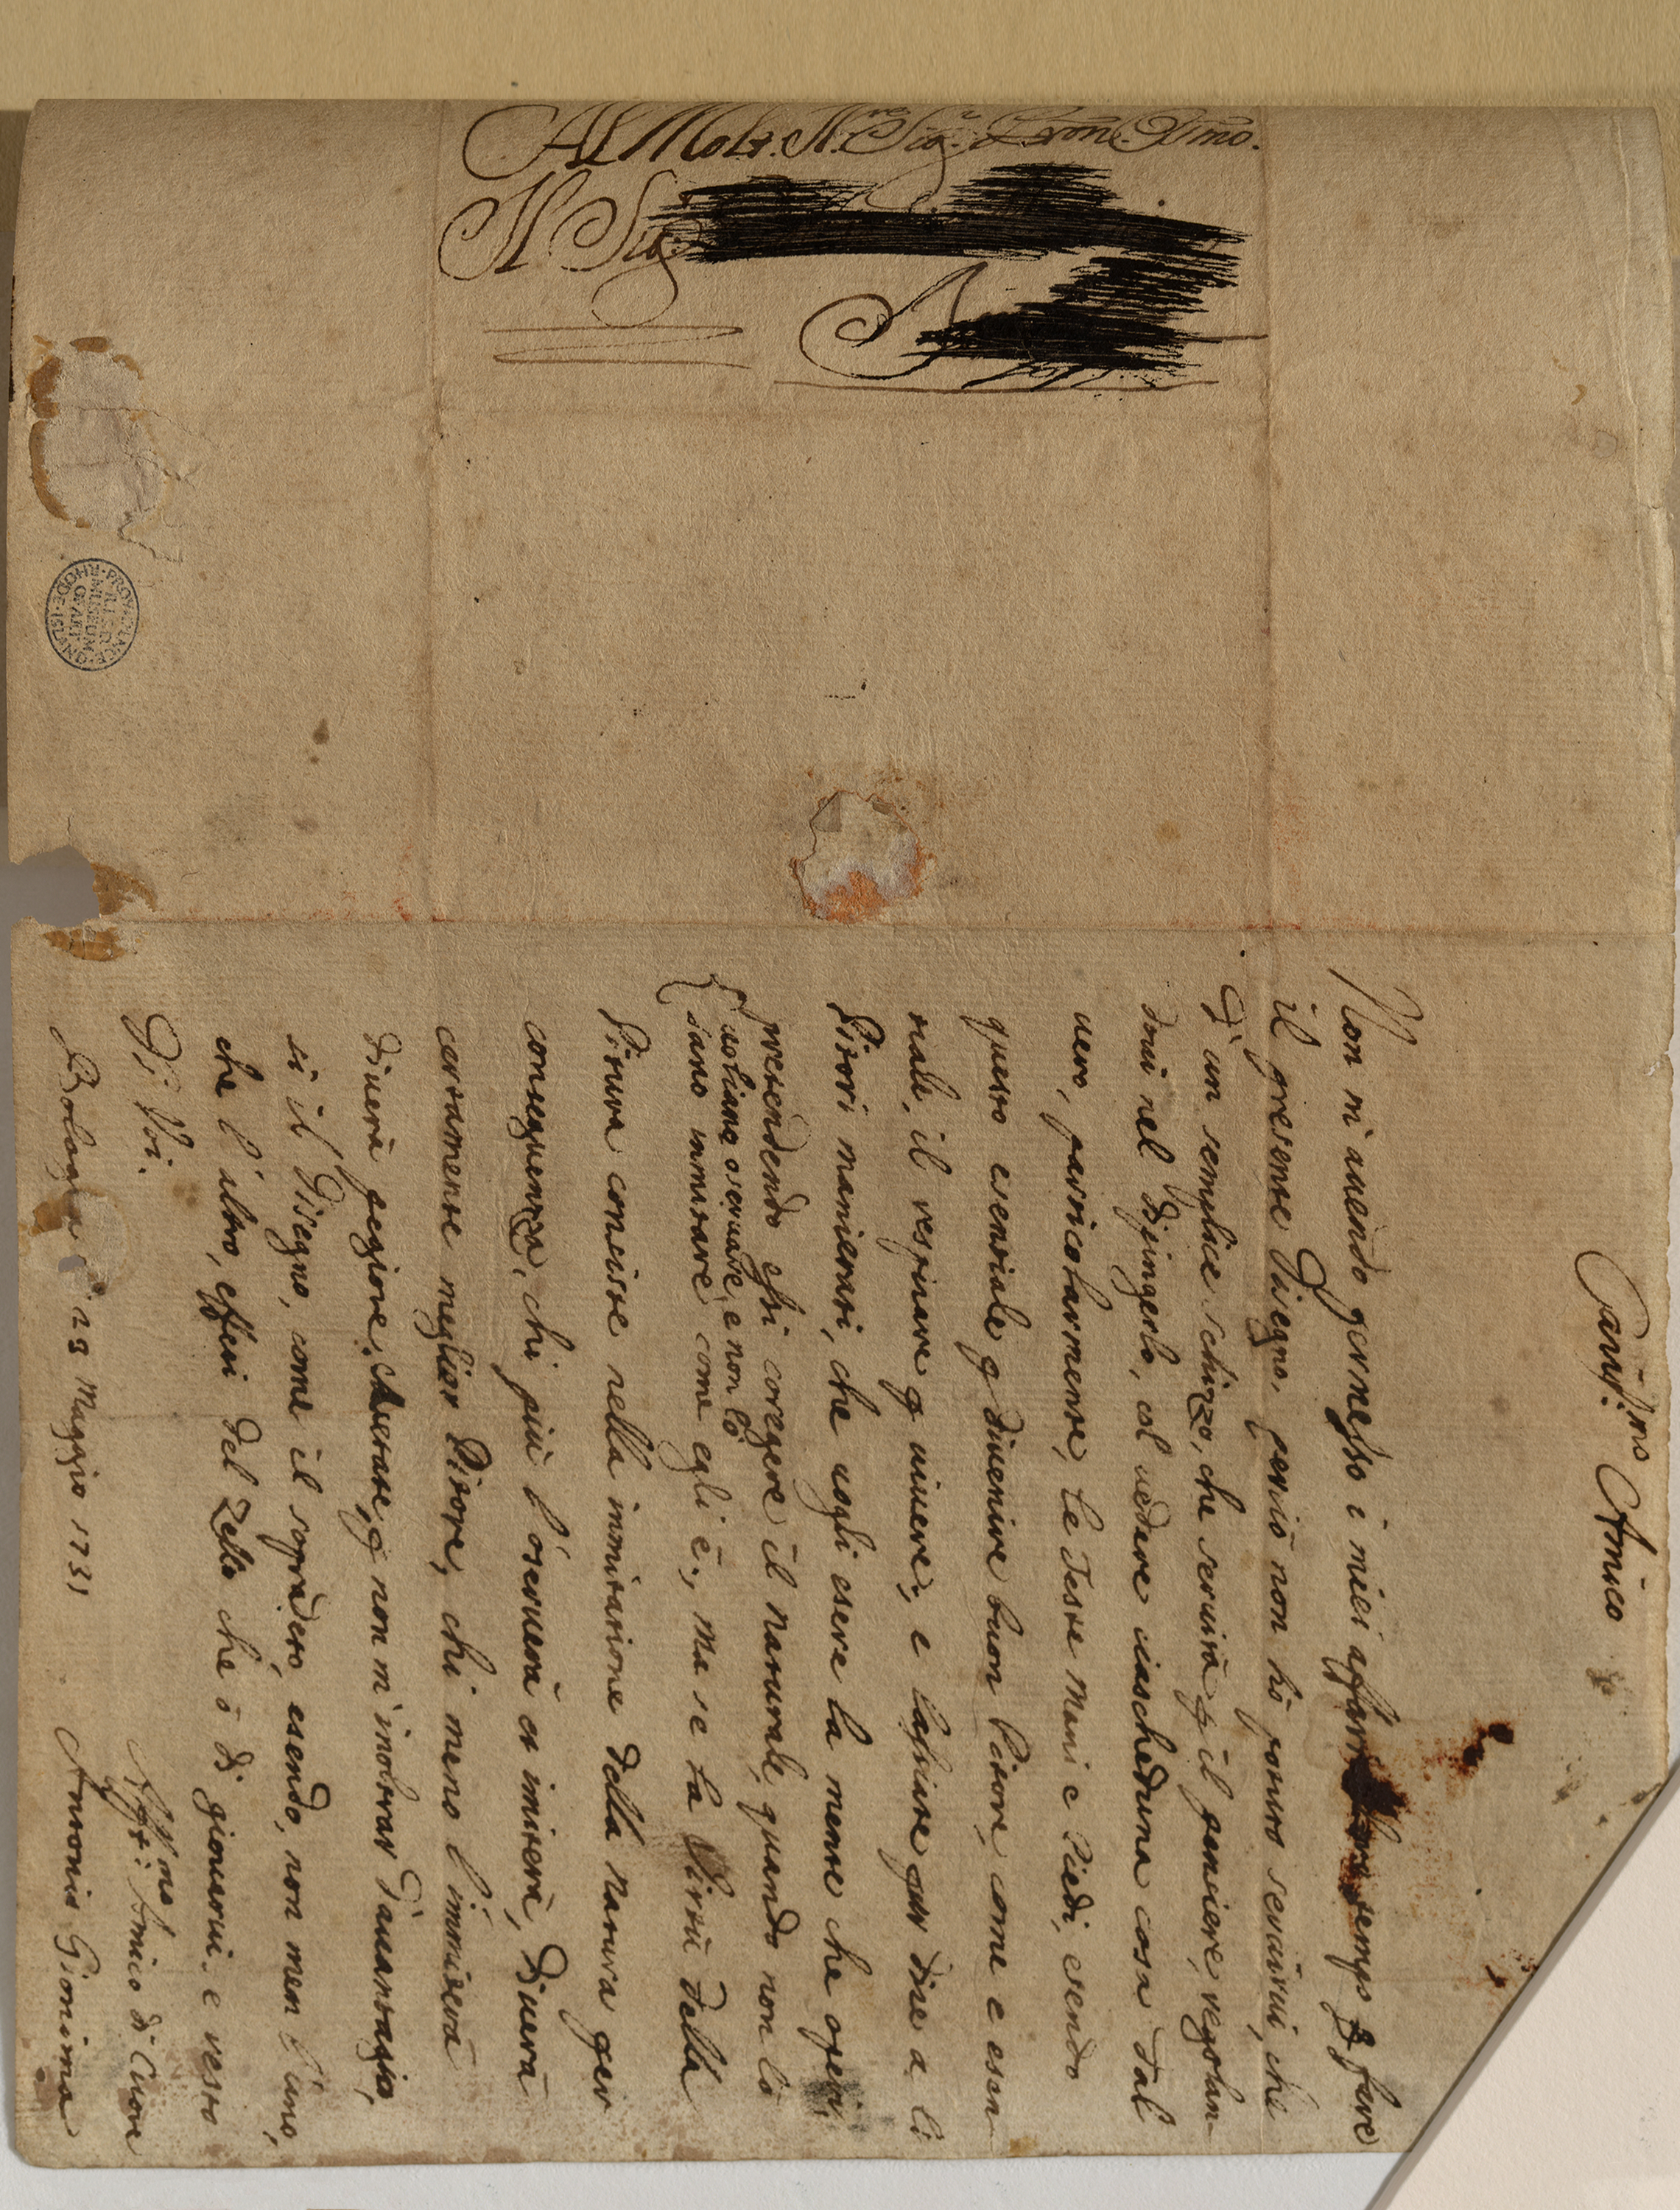 Al Molt. Il.re Sig.r Pron. Oss.mo.
Il Sig.
A
PROVIDENCE·RHODE·ISLAND·
R.I.S.D.
MUSEUM
OF ART
Cariss.mo Amico
Non m'auendo permesso i miei affari tempo p fare
il presente Disegno, perciò non hò potuto seruirui, che
D'un semplice schizzo, che seruirà p il pensiere, regolan-
doui nel Dipingerlo, col uedere ciascheduna cosa dal
uero, particolarmente, le Teste Mani e Piedi, esendo
questo esentiale p diuenire buon Pitore, come e esen
tiale, il respirare p uiuere; e lasciate pur dire a li
Pitori manierati, che uogli esere la mente che operi,
pretendendo essi coregere il naturale, quando non lo
uogliano oseruare, e non lò
sano immitare come egli è, ma se la Virtù della
Pitura consiste nella immitatione della natura per
conseguenza, chi più l'oseruerà et imiterà, Diuerà
certamente meglior Pitore, chi meno l'immiterà
diuerà pegiore. Scusate, p non m'inoltrar D'auantaggio,
si il Disegno, come il sopradeto, esendo, non men l'uno,
che l'altro, effeti del Zello che ò di giouarui. e resto
Di Voi.
Bologna 29 Maggio 1731
Aff.mo Amico di Cuore
Antonio Gionima